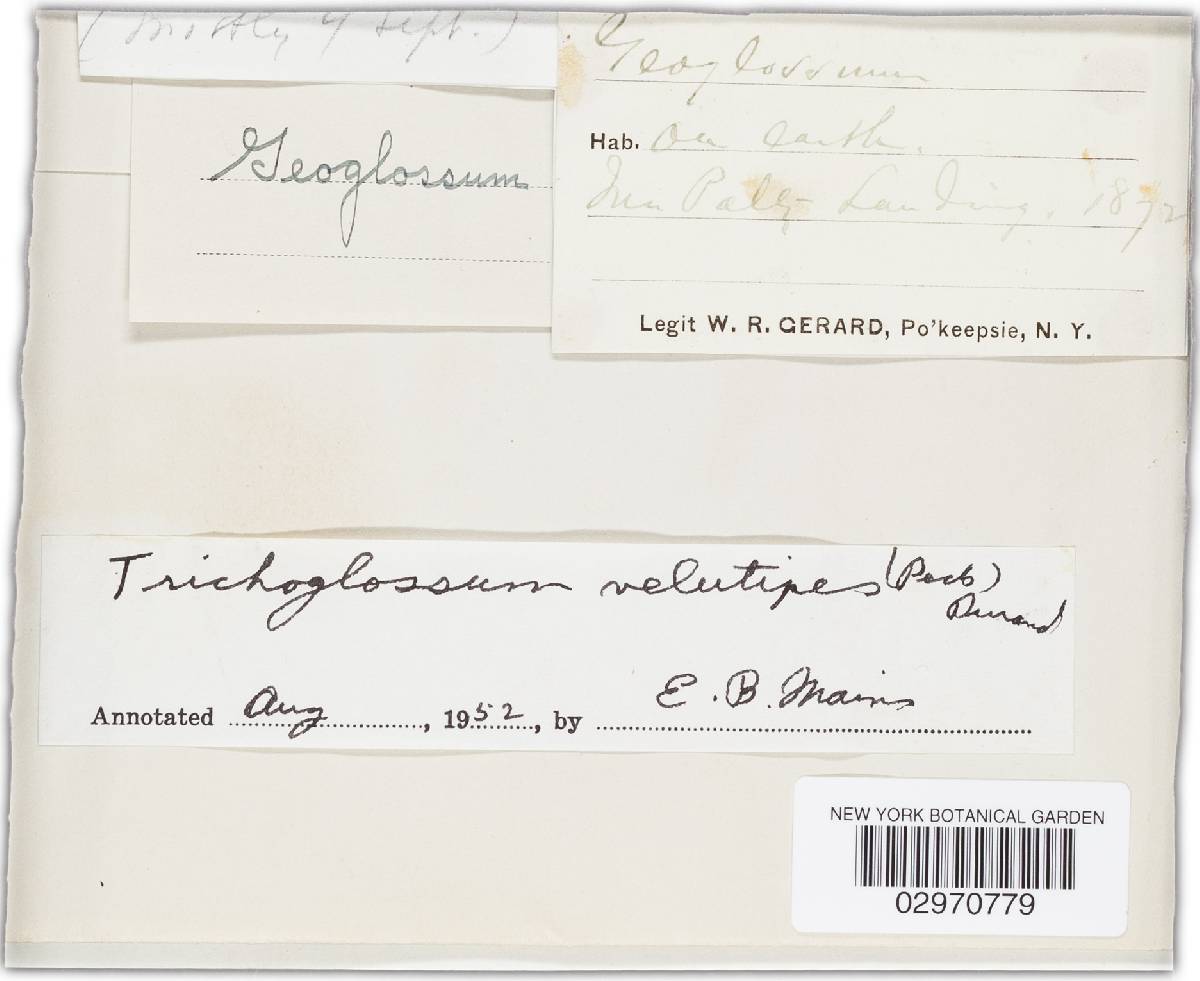 Geoglossum
Hab. on earth.
Landing. 1872
Legit W. R. GERARD, Po'keepsie, N. Y.
Geoglossum
Trichoglossum velutipes (Peck)
Durand
Annotated Aug, 1952, by E. B. Mains
NEW YORK BOTANICAL GARDEN
02970779